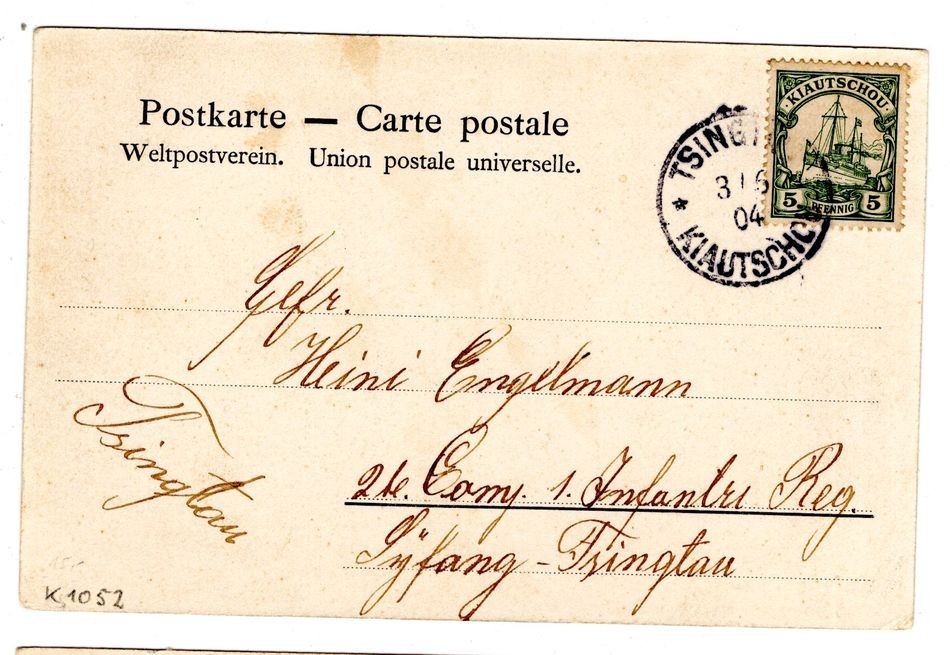 Postkarte — Carte postale
Weltpostverein. Union postale universelle.
KIAUTSCHOU
5 PFENNIG 5
TSINGT
3 6
04
* KIAUTSCHOU
Gefr.
Heini Engelmann
Tsingtau
2te. Comp. 1. Infantri Reg.
Syfang - Tsingtau
15.-
K 1052